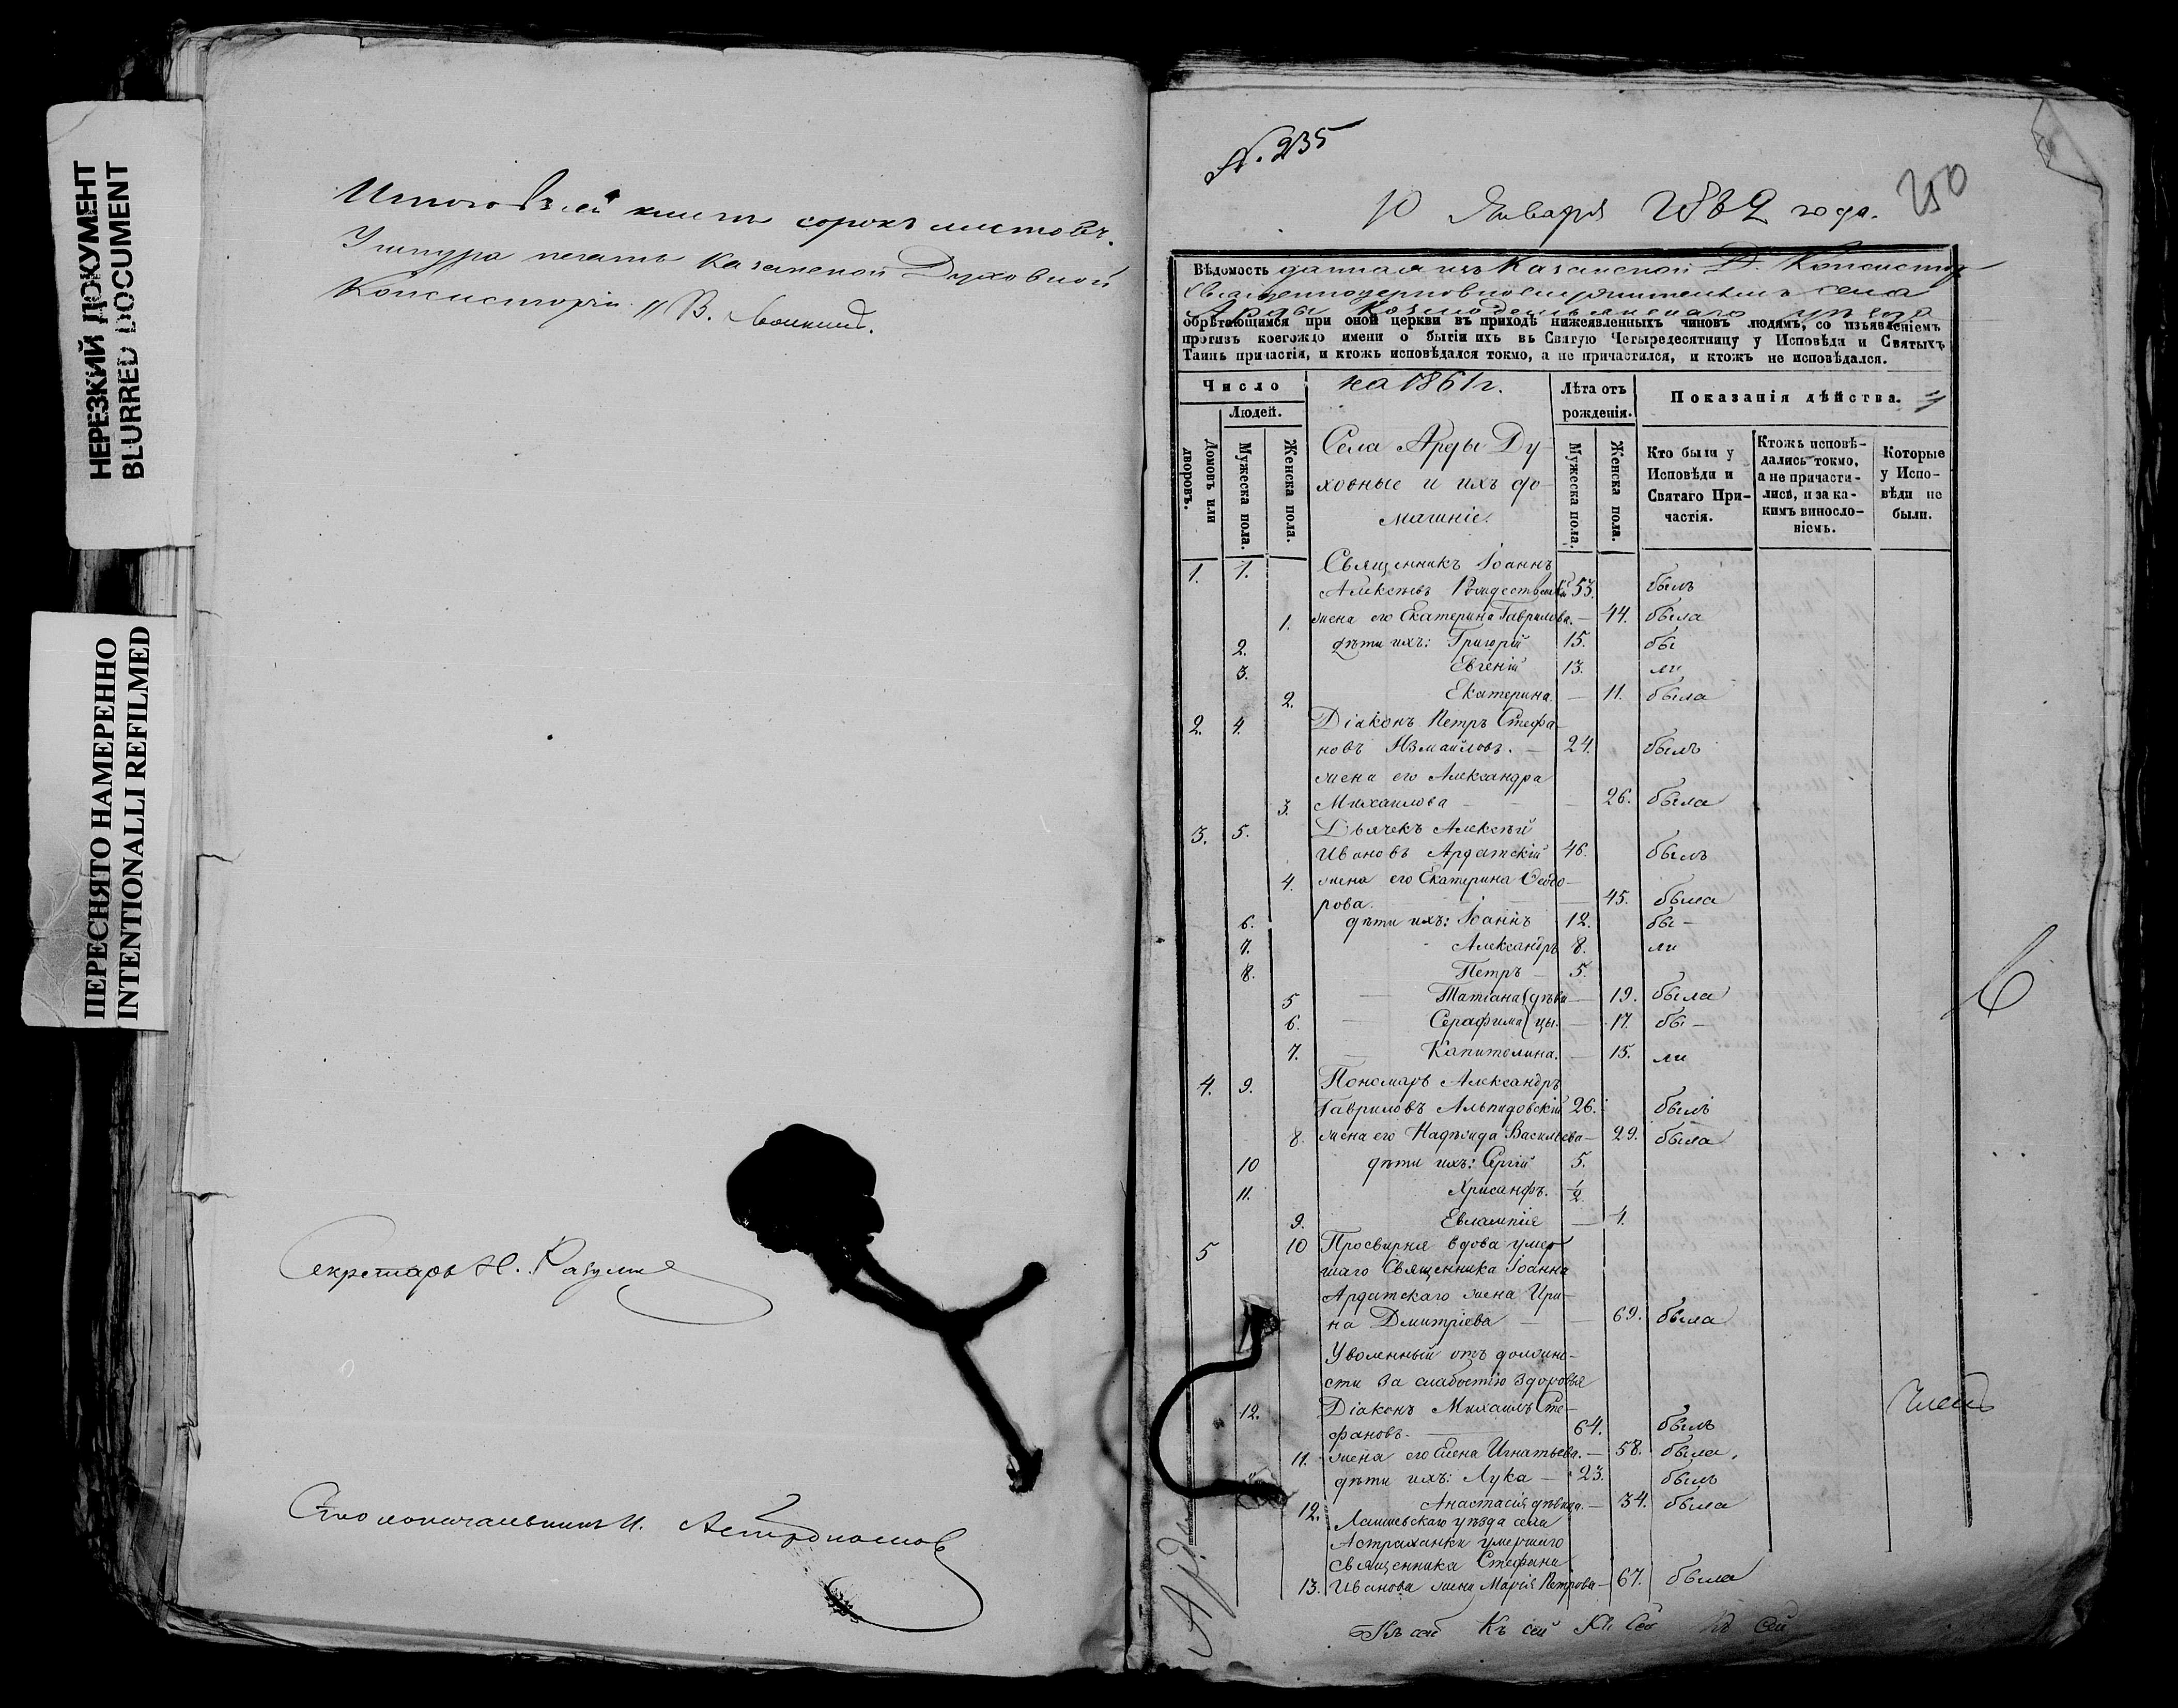 НЕРЕЗКИЙ ДОКУМЕНТ
BLURRED DOCUMENT
ПЕРЕСНЯТО НАМЕРЕННО
INTENTIONALLI REFILMED
Итого въ сей книгѣ сорокъ листовъ.
У шнура печать Казанской Духовной
Консисторіи
Секретарь Н. Разумо
Столоначальникъ И. Астрономовъ
N. 235
10 Января 1862 года.
250
Вѣдомость данная изъ Казанской Д. Консистор
Священноцерковнослужителямъ села
Арды Козмодемьянскаго уѣзда
обрѣтающимся при оной церкви въ приходѣ нижеявленныхъ чиновъ людямъ, со изъявленіемъ
противъ коегождо имени о бытіи ихъ въ Святую Четыредесятницу у Исповѣди и Святыхъ
Таинъ причастія, и ктожъ исповѣдался токмо, а не причастился, и ктожъ не исповѣдался.
Число
на 1861 г.
Лѣта отъ
рожденія.
Показанія дѣйства.
Людей.
Домовъ или
дворовъ.
Мужеска пола.
Женска пола.
Села Арды Ду-
ховные и ихъ до
машніе.
Мужеска пола.
Женска пола.
Кто были у
Исповѣди и
Святаго При-
частія.
Ктожъ исповѣ-
дались токмо,
а не причасти-
лись, и за ка-
кимъ винносло-
віемъ.
Которые
у Испо-
вѣди не
были.
1. 1. Священникъ Іоаннъ
Алексѣевъ Рождественскій 53. былъ
1. жена его Екатерина Гаврилова. — 44. была
2. дѣти ихъ: Григорій 15. бы
3. Евгеній 13. ли
2. Екатерина. — 11. была
2. 4. Діаконъ Петръ Стефа-
новъ Измайловъ. — 24. былъ
жена его Александра
3. Михаилова — — 26. была
3. 5. Дьячекъ Алексѣй
Ивановъ Ардатскій 46. былъ
4. жена его Екатерина Ѳеодо-
рова. — 45. была
6. дѣти ихъ: Іоаннъ 12. бы-
7. Александръ 8. ли
8. Петръ — 5.
5 — Татіана (дѣви — 19. была
6. — Серафима (цы. — 17. бы-
7. — Капитолина. — 15. ли
4. 9. Пономарь Александръ
Гавриловъ Альпидовскій 26. былъ
8. жена его Надежда Васильева — 29. была
10 дѣти ихъ: Сергій 5.
11. Хрисанфъ. 1/2
9. Евлампія — 4.
5 10 Просвирня вдова умер
шаго Священника Іоанна
Ардатскаго жена Ири-
на Дмитріева — — 69. была
Уволенный отъ должно-
сти за слабостію здоровья
12. Діаконъ Михаилъ Сте-
фановъ. — 64. былъ
11. жена его Елена Игнатьева. — 58. была.
дѣти ихъ: Лука — 23. былъ
12. Анастасія дѣвица. — 34. была
Лаишевскаго уѣзда села
Астраханки умершаго
священника Стефана
13. Иванова жена Марія Петрова — 67. была
Къ сей Къ сей Къ сей